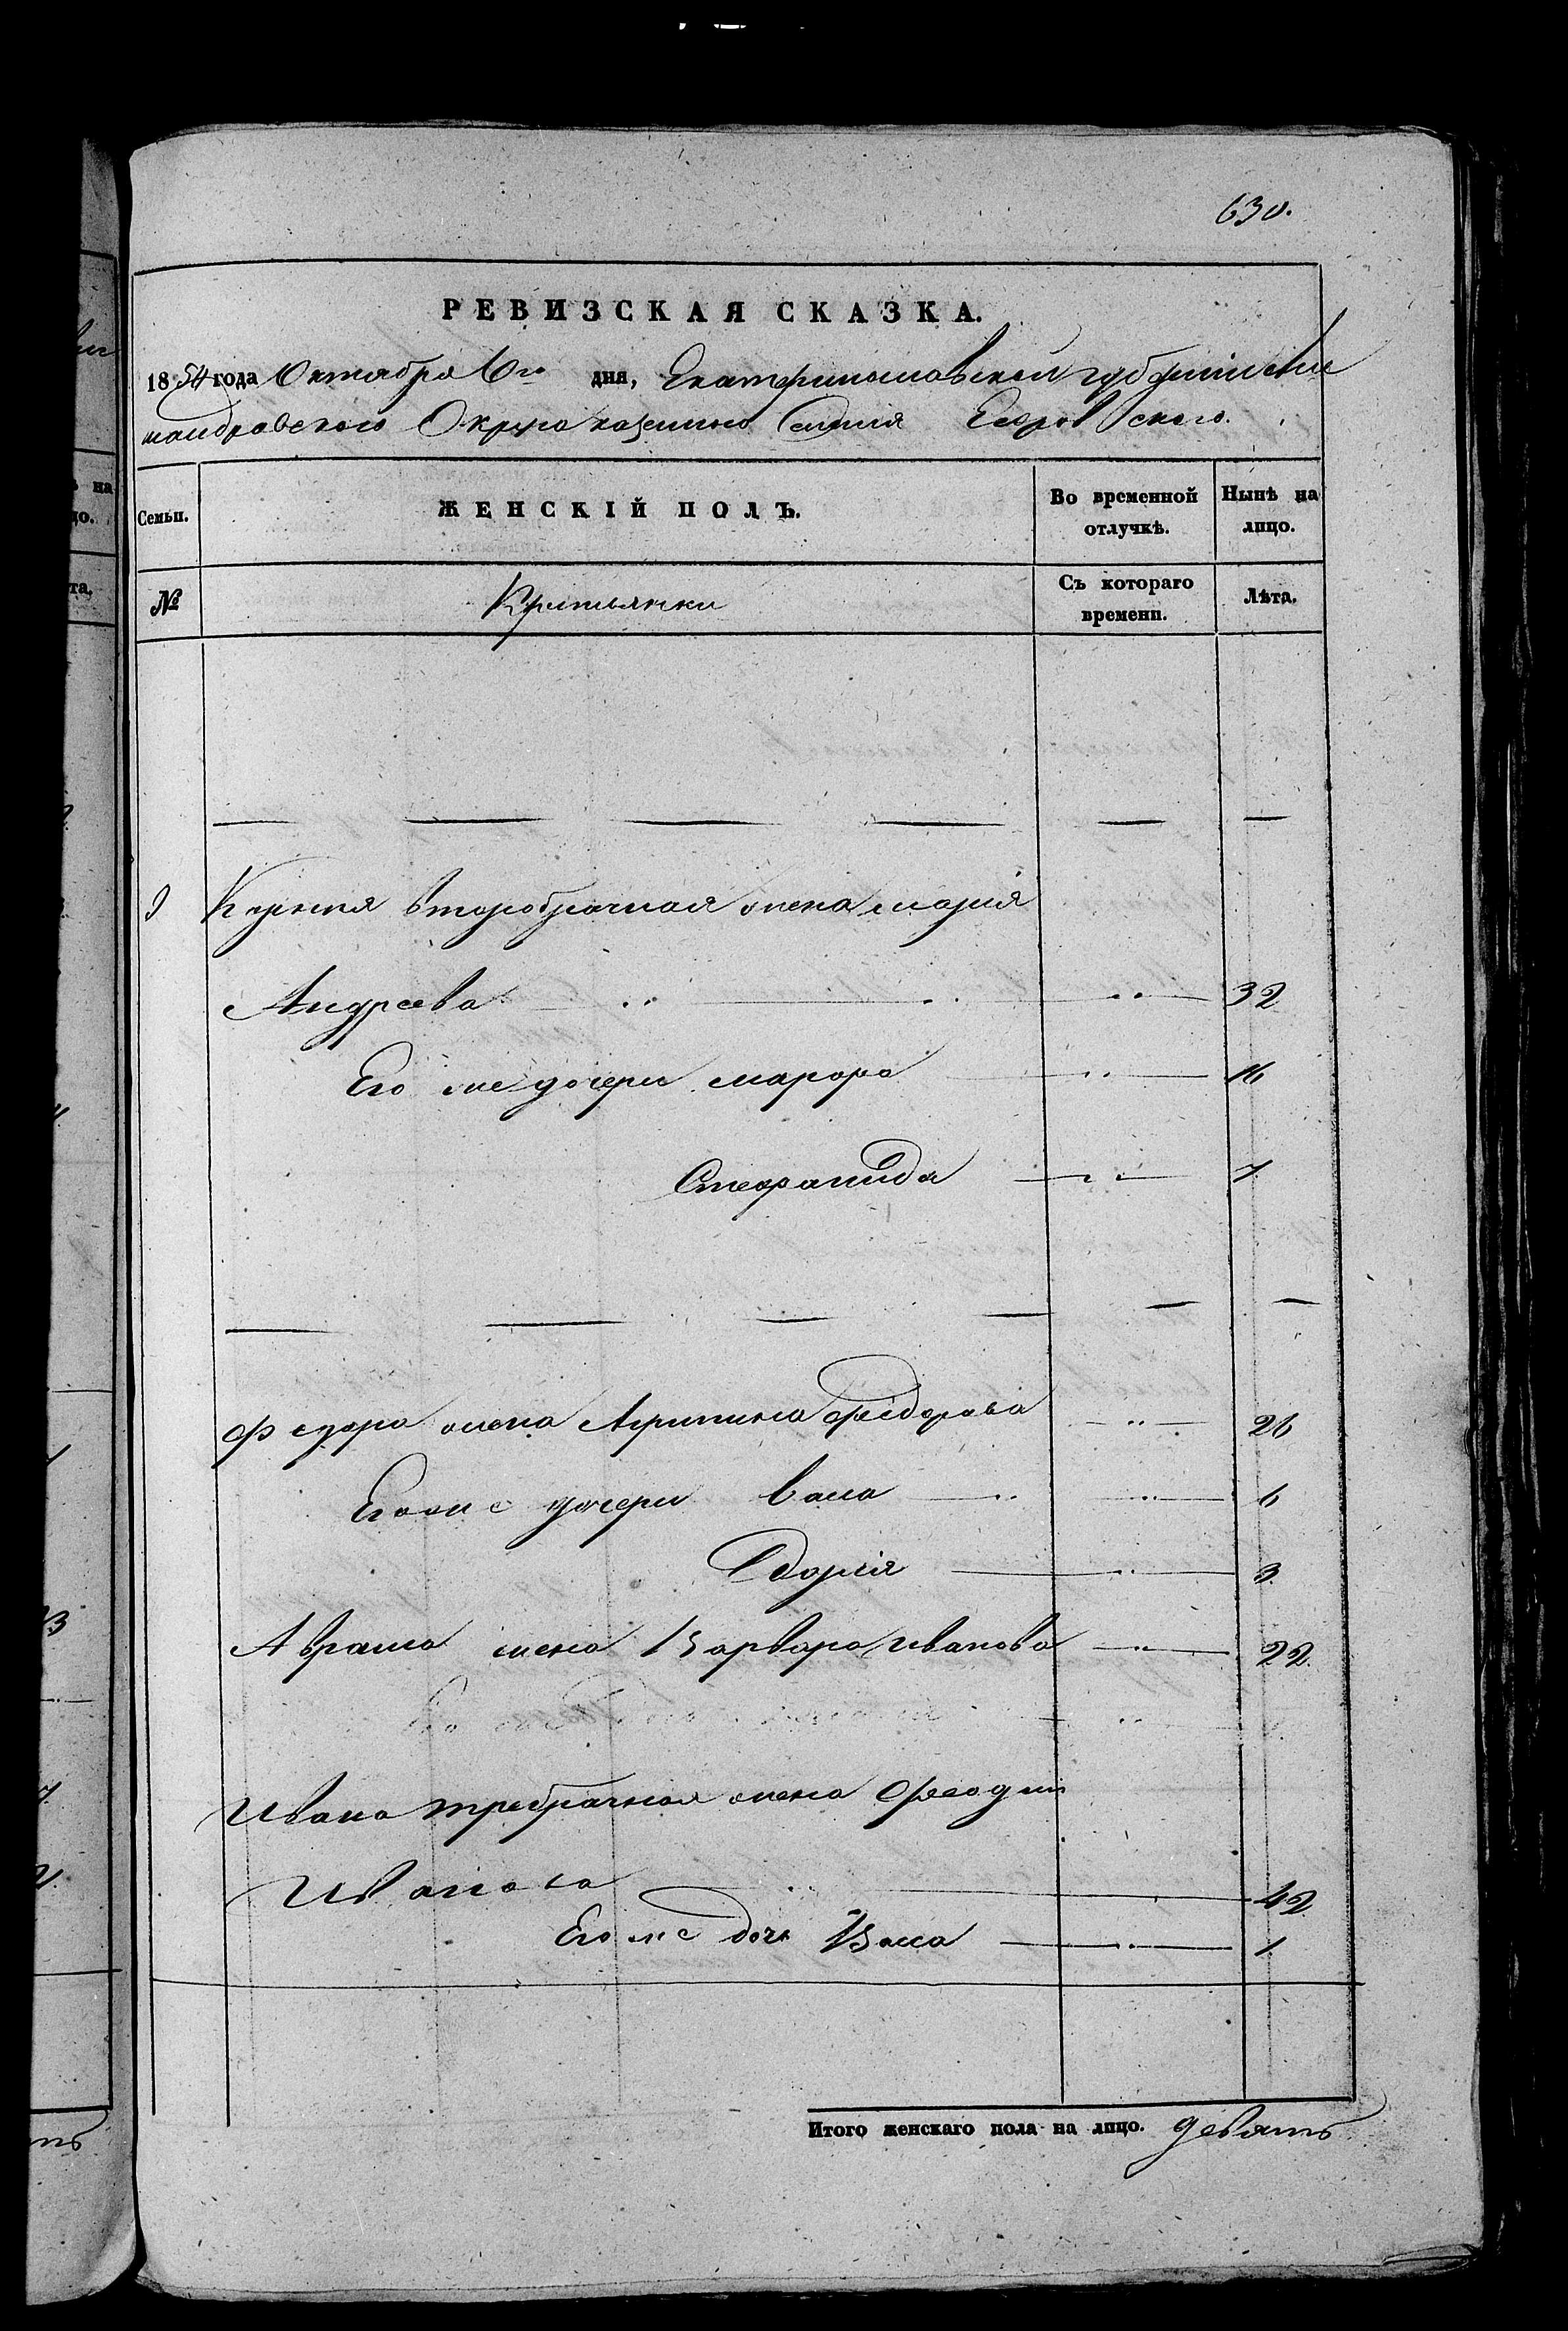 630.
РЕВИЗСКАЯ СКАЗКА.
1854 года Октября 6го дня, Екатеринославской губернии Алек
сандровского Округа казенного селения Егоровского.
Семьи. ЖЕНСКІЙ ПОЛЪ. Во временной отлучкѣ. Нынѣ на лицо.
№ Крестьянки Съ котораго времени. Лѣта.
Второбрачная жена Мария
Андреева 32
Его же дочери Марфа 16
Степанида 7
Федора жена Агрипина Федорова 26
Его же дочери Васа 6
Дарія 3
Аврама жена Варвара Иванова 22
Ивана требрачная жена
Иванова 42
Его же дочь Васса 1
Итого женскаго пола на лицо. девять